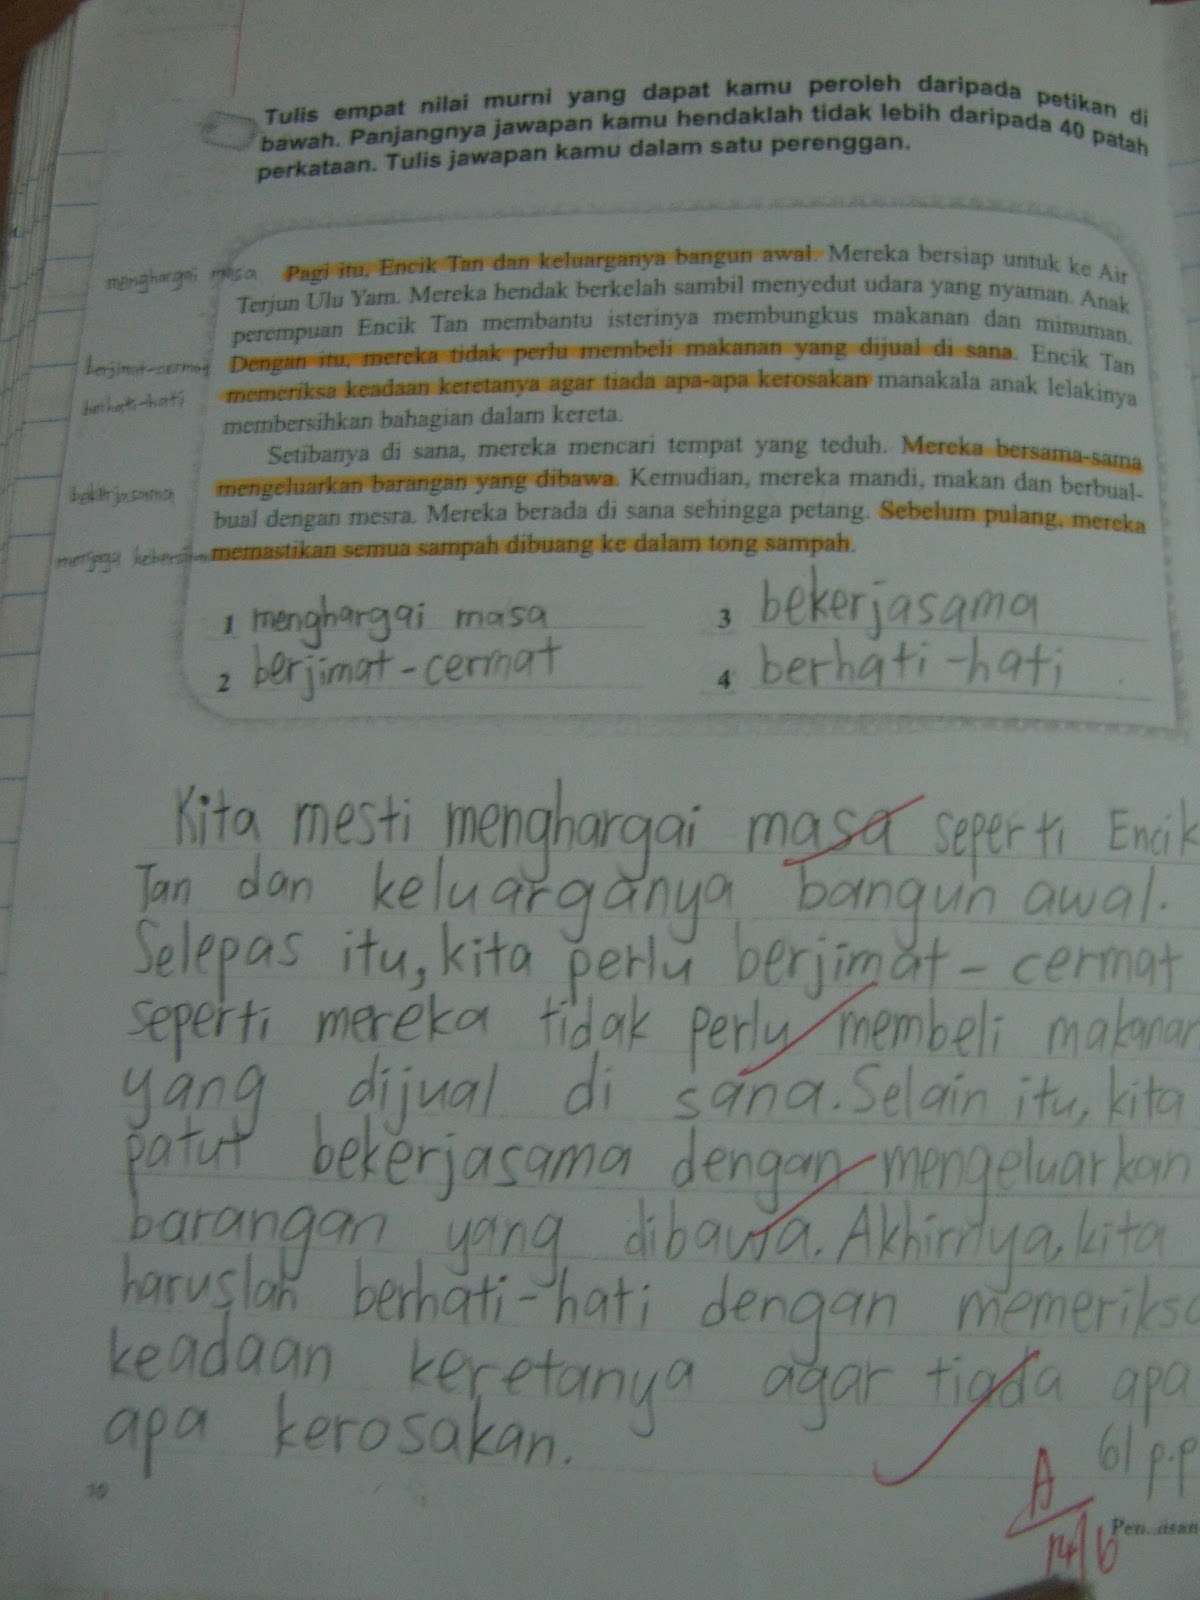 Tulis empat nilai murni yang dapat kamu peroleh daripada petikan di
bawah. Panjangnya jawapan kamu hendaklah tidak lebih daripada 40 patah
perkataan. Tulis jawapan kamu dalam satu perenggan.
menghargai masa Pagi itu, Encik Tan dan keluarganya bangun awal. Mereka bersiap untuk ke Air
Terjun Ulu Yam. Mereka hendak berkelah sambil menyedut udara yang nyaman. Anak
perempuan Encik Tan membantu isterinya membungkus makanan dan minuman.
berjimat-cermat Dengan itu, mereka tidak perlu membeli makanan yang dijual di sana. Encik Tan
berhati-hati memeriksa keadaan keretanya agar tiada apa-apa kerosakan manakala anak lelakinya
membersihkan bahagian dalam kereta.
Setibanya di sana, mereka mencari tempat yang teduh. Mereka bersama-sama
bekerjasama mengeluarkan barangan yang dibawa. Kemudian, mereka mandi, makan dan berbual-
bual dengan mesra. Mereka berada di sana sehingga petang. Sebelum pulang, mereka
menjaga memastikan semua sampah dibuang ke dalam tong sampah.
1 menghargai masa 3 bekerjasama
2 berjimat-cermat 4 berhati-hati
Kita mesti menghargai masa seperti Encik
Tan dan keluarganya bangun awal.
Selepas itu, kita perlu berjimat-cermat
seperti mereka tidak perlu membeli makanan
yang dijual di sana. Selain itu, kita
patut bekerjasama dengan mengeluarkan
barangan yang dibawa. Akhirnya, kita
haruslah berhati-hati dengan memeriksa
keadaan keretanya agar tiada apa
apa kerosakan.
61 p.p
A
14/6